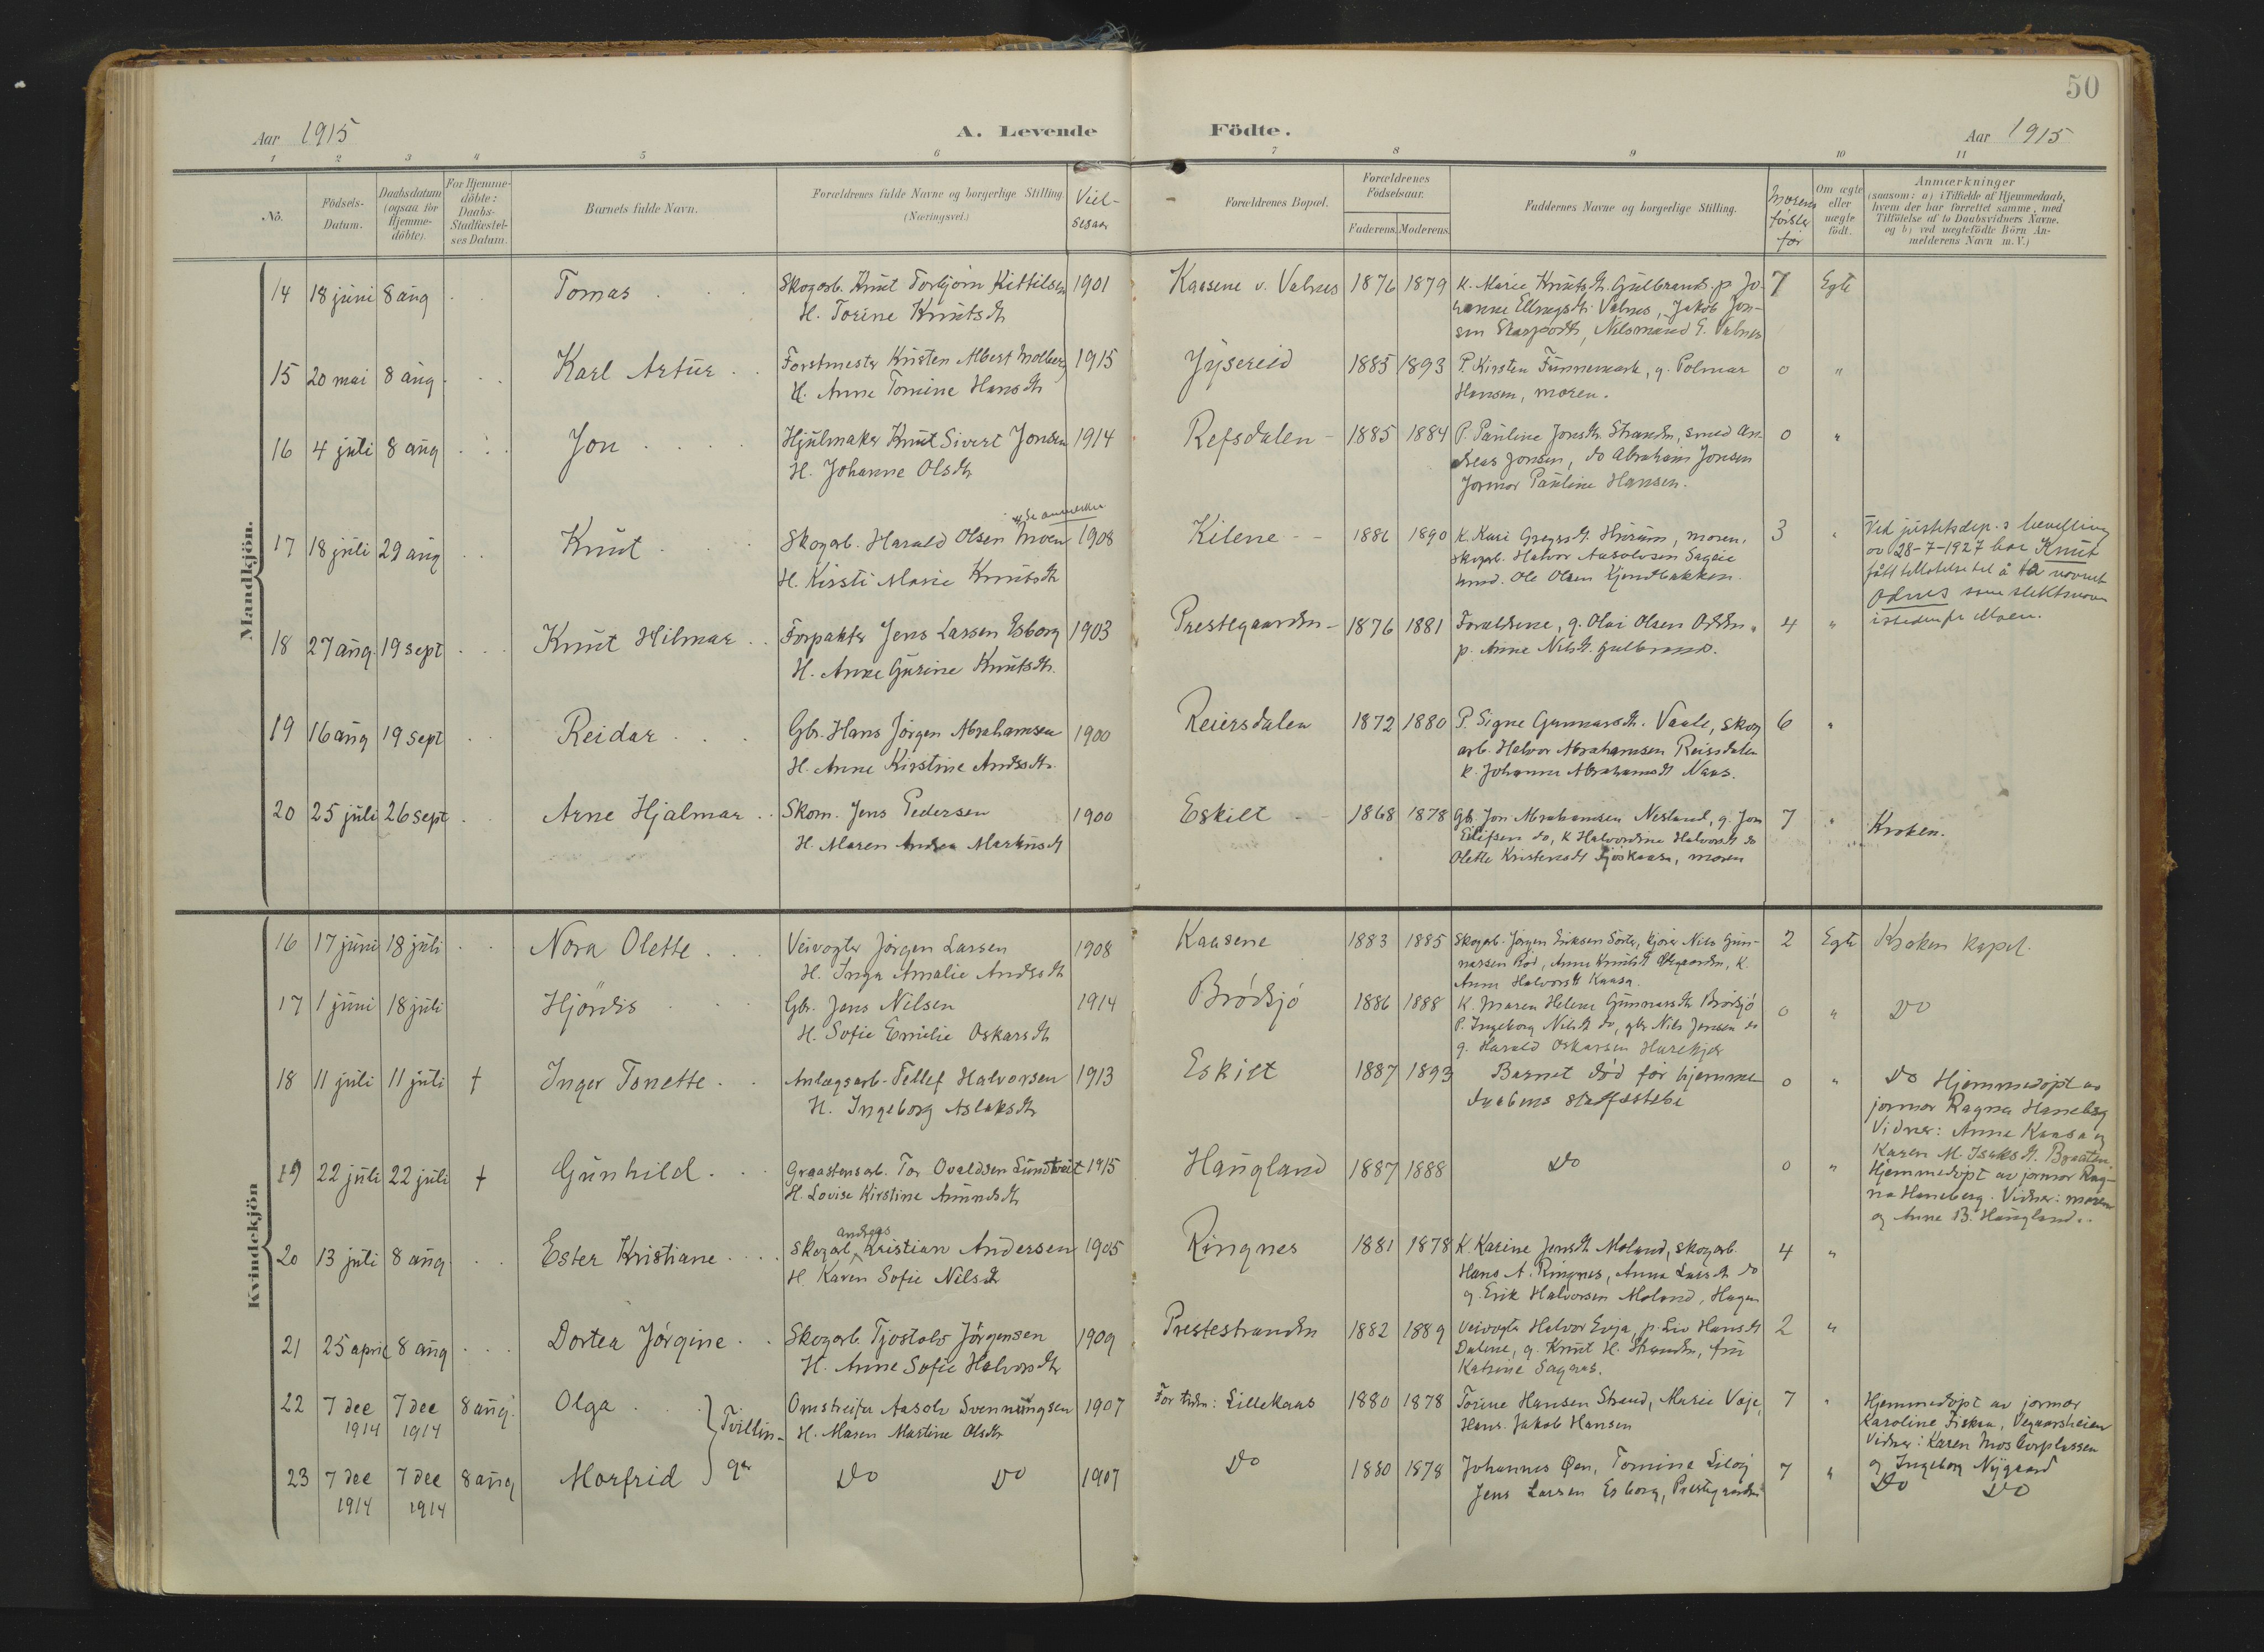 50
Aar 1915
A. Levende
Födte.
Aar 1915
1 2 3 4 5 6 7 8 9 10 11
No.
Födsels-
Datum.
Daabsdatum
(ogsaa for
Hjemme-
döbte).
For Hjemme-
döbte:
Daabs-
Stadfæstel-
ses Datum.
Barnets fulde Navn.
Forældrenes fulde Navne og borgerlige Stilling.
(Næringsvei.)
Viel-
sesaar
Forældrenes Bopæl.
Forældrenes
Födselsaar.
Faderens. Moderens.
Faddernes Navne og borgerlige Stilling.
Morens
første
før
Om ægte
eller
uægte
födt.
Anmærkninger
(saasom: a) i Tilfælde af Hjemmedaab,
hvem der har forrettet samme, med
Tilföielse af to Daabsvidners Navne,
og b) ved uægtefödte Börn An-
melderens Navn m. V.)
Mandkjön.
14 18 juni 8 aug Tomas
Skogarb. Knut Torbjörn Kittilsen 1901
H. Torine Knutsdtr
Kaasene v. Valnes 1876 1879
K. Marie Knutsdtr. Gulbrands. p. Jo-
hanne Ellingsdtr. Valnes, Jakob Jon-
sen, Nilsmand G. Valnes
7 Egte
15 20 mai 8 aug Karl Artur
Forstmester Kristen Albert Molberg 1915
H. Anne Tomine Hansdtr
Jysereid 1885 1893
P. Kirsten Funnemark, g. Polmar
Hansen, moren.
0 "
16 4 juli 8 aug Jon
Hjulmaker Knut Sivert Jonsen 1914
H. Johanne Olsdtr
Refsdalen 1885 1884
P. Pauline Jonsdtr. Stranden, smed An-
dreas Jonsen, do Abraham Jonsen
Jormor Pauline Hansen.
0 "
17 18 juli 29 aug Knut
se anmerkn
Skogarb. Harald Olsen Moen 1908
H. Kirsti Marie Knutsdtr
Kilene 1886 1890
K. Kari Gregersdtr. Hjorum, moren,
skogarb. Halvor Aasolvsen Sageie
Ole Olsen Kjendbakken.
3 "
Ved justitsdep.s bevilling
av 28-7-1927 har Knut
fått tillatelse til å ta navnet
Odnes som slektsnavn
istedenfor Moen.
18 27 aug. 19 sept Knut Hilmar
Forpakter Jens Larsen Esborg 1903
H. Anne Gurine Knutsdtr.
Prestegaarden 1876 1881
Forældrene, g. Olai Olsen Odden,
p. Anne Nilsdtr. Gulbrands.
4 "
19 16 aug 19 sept Reidar
Gbr. Hans Jörgen Abrahamsen 1900
H. Anne Kirstine Andsdtr.
Reiersdalen 1872 1880
P. Signe Gunnarsdtr. Vaale, skog
arb. Halvor Abrahamsen Reirsdalen
k. Johanne Abrahamsdtr Naas.
6 "
20 25 juli 26 sept Arne Hjalmar
Skom. Jens Pedersen 1900
H. Maren Andrea Markusdtr
Eskilt 1868 1878
Gb. Jon Abrahamsen Nesland, g. Jon
Eilifsen do, k Halvordine Halvorsdtr do
Olette Kristensdtr Sjöskaasa, moren
7 " Kroken.
Kvindekjön
16 17 juni 18 juli Nora Olette
Veivogter Jörgen Larsen 1908
H. Inga Amalie Andsdtr
Kaasene 1883 1885
Skogarb. Jörgen Eriksen Sorte, kjører Nils Gun-
narsen Röd, Anne Knutsdtr, K.
Anna Halvorsdtr Kaasa.
2 Egte Kroken kapel.
17 1 juni 18 juli Hjördis
Gbr. Jens Nilsen 1914
H. Sofie Emilie Oskarsdtr
Brödsjö 1886 1888
K. Maren Helene Gunnarsdtr Brödsjö
P. Ingeborg Nilsdtr do, gbr Nils Jensen do
g. Harald Oskarsen Harekjær
0 " Do
18 11 juli 11 juli † Inger Tonette
Anlægsarb. Tellef Halvorsen 1913
H. Ingeborg Aslaksdtr
Eskilt 1887 1893
Barnet död för hjemme
daabens stadfæstelse
0 "
Do Hjemmedöpt av
jormor Ragna Haneberg
Vidner: Anne Kaasa og
Karen M. Isaksdtr. Braaten.
19 22 juli 22 juli † Gunhild
Graastensarb. Tor Ovaldsen Sundtveit 1915
H. Lovise Kirstine Amundsdtr
Haugland 1887 1888
Do
0 "
Hjemmedöpt av jormor Rag-
na Haneberg. Vidner: moren
og Anne B. Haugland.
20 13 juli 8 aug Ester Kristiane
andreas
Skogarb. Kristian Andersen 1905
H. Karen Sofie Nilsdtr
Ringnes 1881 1878
K. Karine Jensdtr Moland, skogarb.
Hans A. Ringnes, Anna Larsdtr do
g. Erik Halvorsen Moland, Hagen
4 "
21 25 april 8 aug Dortea Jörgine
Skogarb. Tjostolv Jörgensen 1909
H. Anne Sofie Halvorsdtr
Prestestranden 1882 1889
Veivogter Halvor Evja, p. Liv Hansdtr
Dalene, g. Knut H. Stranden, fru
Katrine Sagaas.
2 "
22 7 dec 7 dec 8 aug. Olga
1914 1914
Omstreifer Aasolv Svenningsen 1907
H. Maren Martine Olsdtr
For tiden: Lillekaas 1880 1878
Torine Hansen Strand, Marie Voje,
Hans Jakob Hansen
7 "
Hjemmedöpt av jormor
Karoline Fiskaa, Vegaarsheien
Vidner: Karen Mostorplassen
og Ingeborg Nygaard
Tvillin-
ger
23 7 dec 7 dec 8 aug Morfrid
1914 1914
Do Do 1907
Do 1880 1878
Johannes Øen, Tomine Liløi
Jens Larsen Esborg, Prestegaarden
7 " Do Do